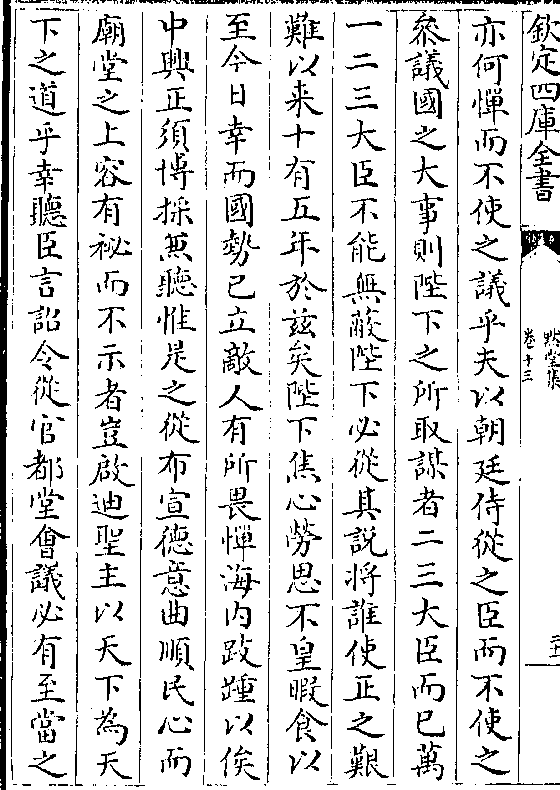 欽定四庫全書
卷十三
亦何憚而不使之議乎夫以朝廷侍從之臣而不使之
叅議國之大事則陛下之所取謀者二三大臣而已萬
一二三大臣不能無蔽陛下必從其説將誰使正之艱
難以来十有五年於兹矣陛下焦心勞思不皇暇食以
至今日幸而國勢已立敵人有所畏憚海内跂踵以俟
中興正須博採兼聽惟是之從布宣德意曲順民心而
廟堂之上容有秘而不示者豈啟迪聖主以天下為天
下之道乎幸聽臣言詔令從官都堂會議必有至當之